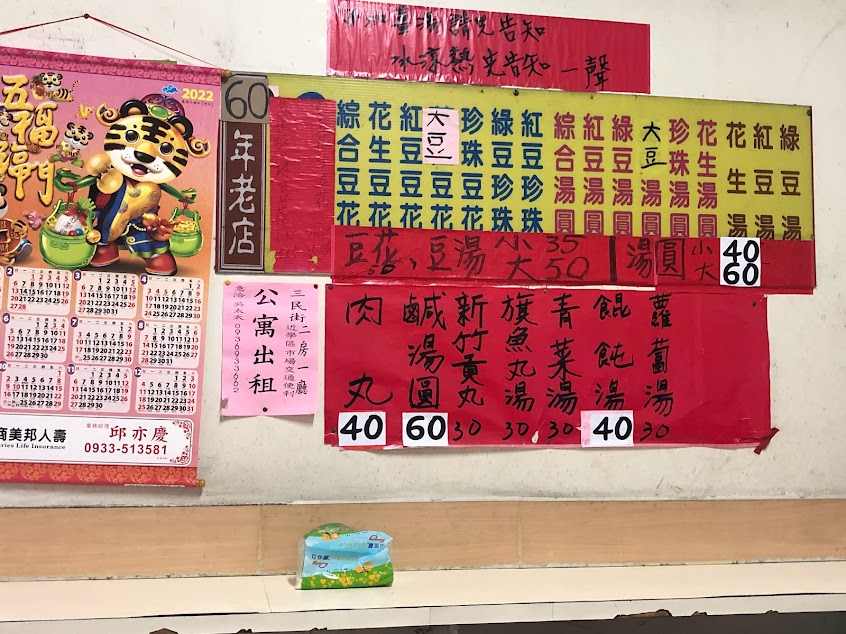 加薑湯請先告知
涼熱先告知一聲
2022
五福
門
60
年老店
綜合豆花
花生豆花
紅豆豆花
大豆豆花
珍珠豆花
綠豆珍珠
紅豆珍珠
綜合湯圓
紅豆湯圓
綠豆湯圓
大豆湯圓
珍珠湯圓
花生湯圓
花生湯
紅豆湯
綠豆湯
豆花、豆湯 小35
大50
湯圓 小40
大60
三民街二房一廳
近學區市場交通便利
公寓出租
意洽 吳太太 0936933662
肉丸 40
鹹湯圓 60
新竹貢丸 30
旗魚丸湯 30
青菜湯 30
餛飩湯 40
蘿蔔湯 30
商美邦人壽
ries Life Insurance
業務經理 邱亦慶
0933-513581